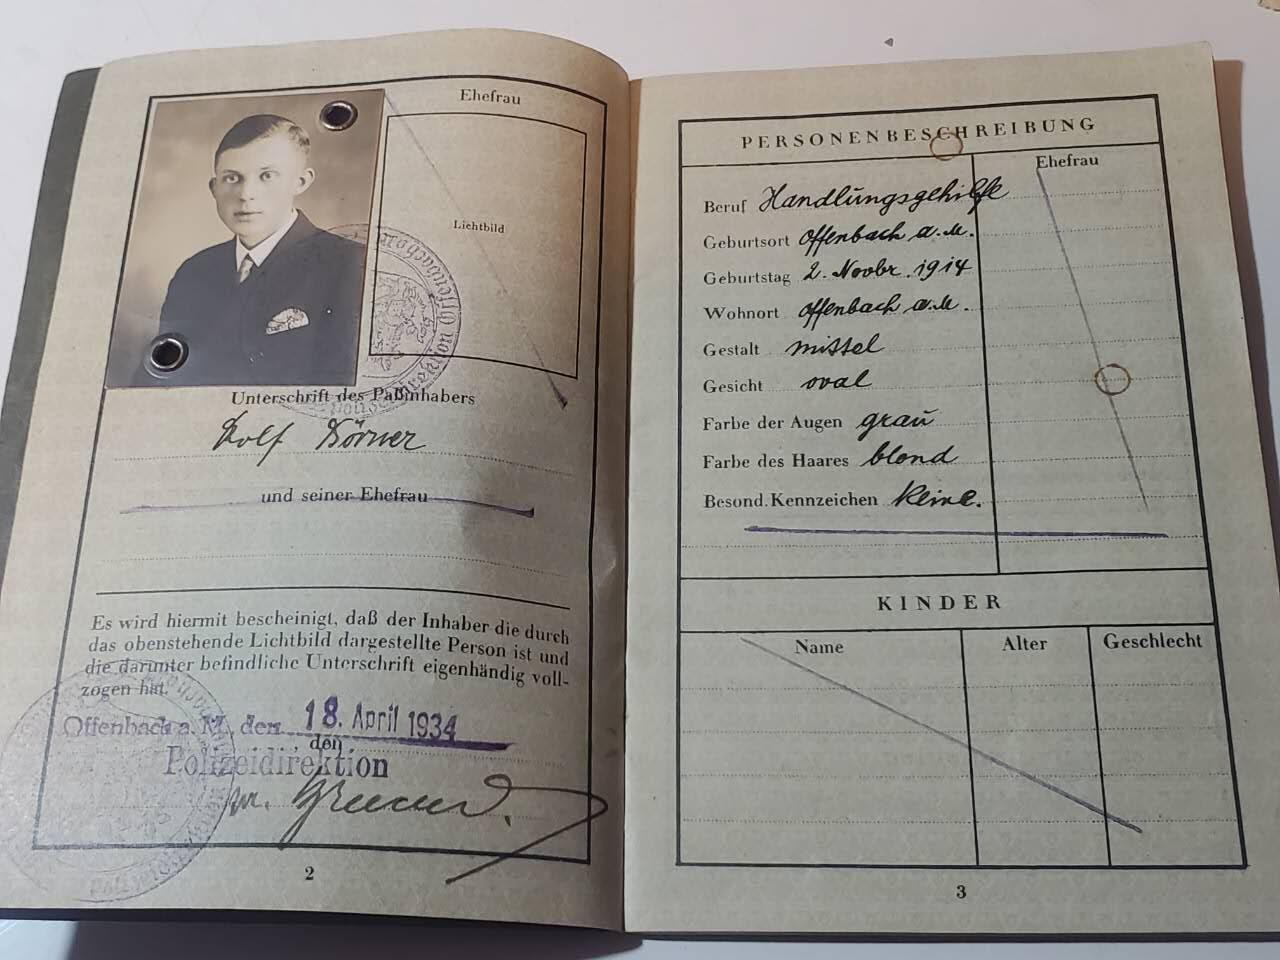 Ehefrau
Lichtbild
Unterschrift des Paßinhabers
Rolf Körner
und seiner Ehefrau
Es wird hiermit bescheinigt, daß der Inhaber die durch
das obenstehende Lichtbild dargestellte Person ist und
die darunter befindliche Unterschrift eigenhändig voll-
zogen hat.
Offenbach a. M., den 18. April 1934
, den
Polizeidirektion
2
PERSONENBESCHREIBUNG
Ehefrau
Beruf Handlungsgehilfe
Geburtsort Offenbach a. M.
Geburtstag 2. Novbr. 1914
Wohnort Offenbach a. M.
Gestalt mittel
Gesicht oval
Farbe der Augen grau
Farbe des Haares blond
Besond. Kennzeichen keine.
KINDER
Name Alter Geschlecht
3